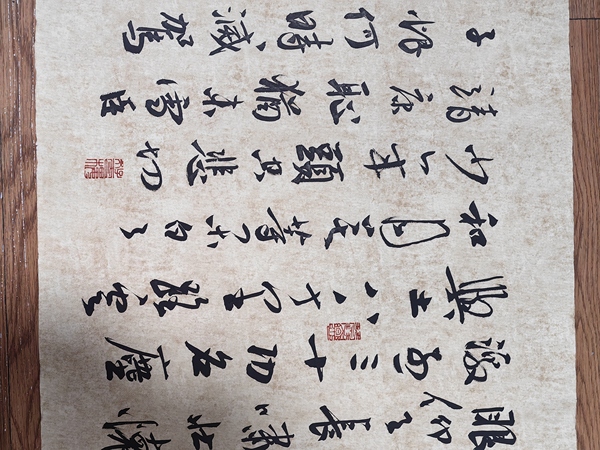 眼仰天長嘯壯懷
激烈三十功名塵
與土八千里路雲
和月莫等閑白了
少年頭空悲切
靖康恥猶未雪臣
子恨何時滅駕